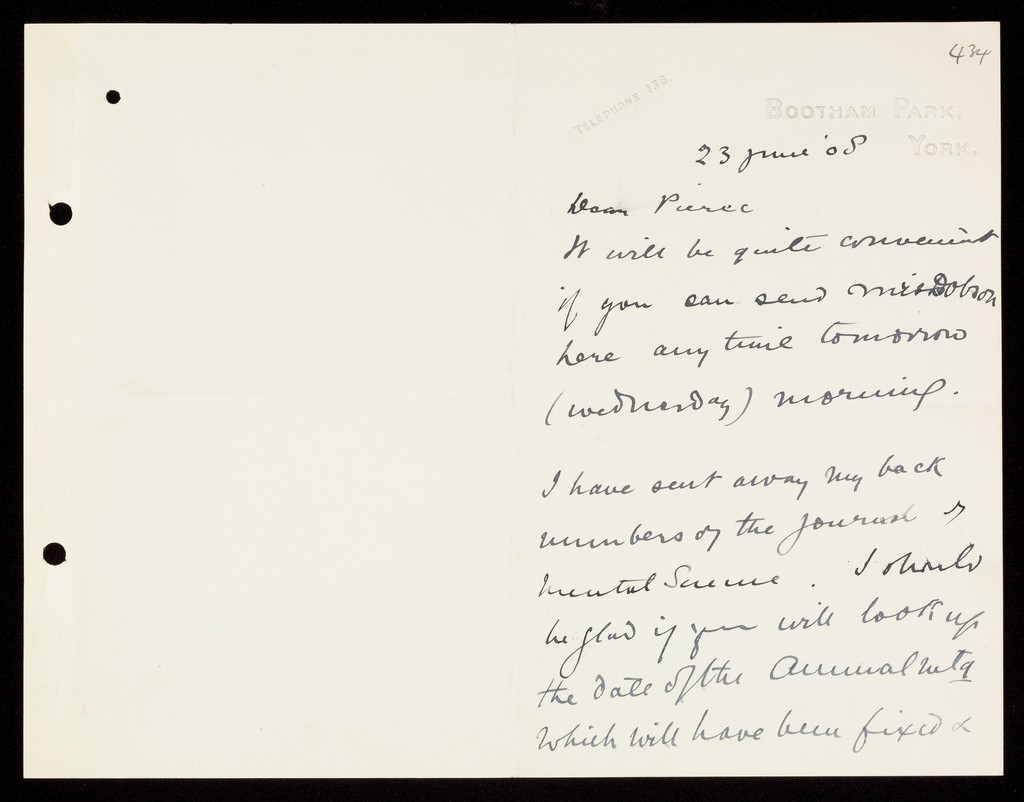 434
TELEPHONE 133.
BOOTHAM PARK,
YORK.
23 June '08
Dear Pierce
It will be quite convenient
if you can send Miss Dobson
here any time tomorrow
(Wednesday) morning.
I have sent away my back
numbers of the Journal of
Mental Science. I should
be glad if you will look up
the date of the Annual Mtg
which will have been fixed &